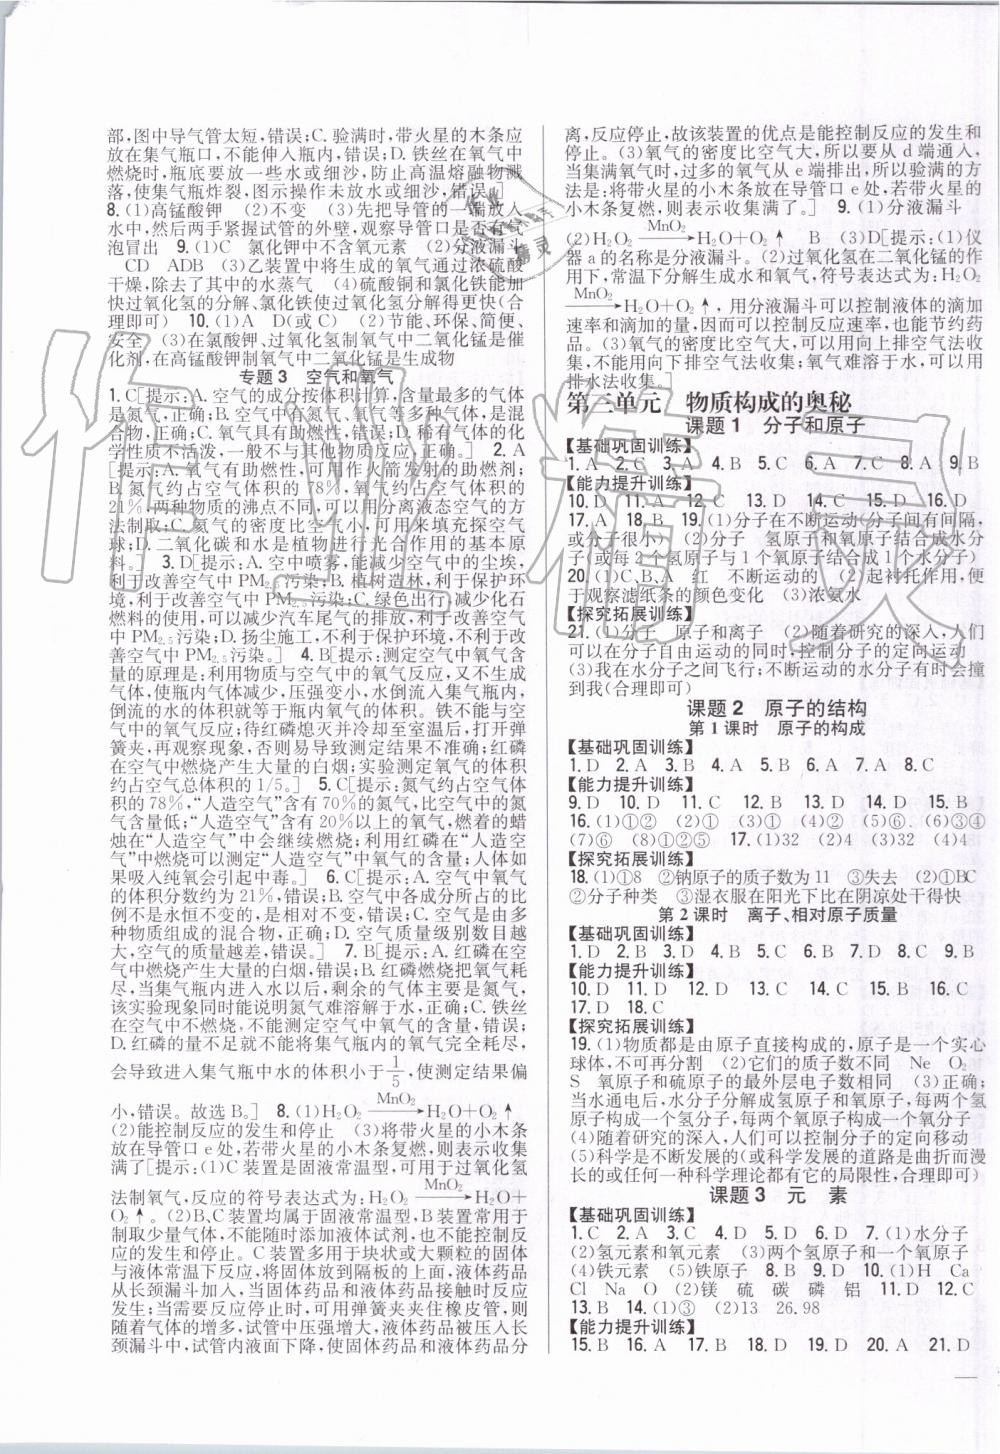 部,图中导气管太短,错误;C. 验满时,带火星的木条应
放在集气瓶口,不能伸入瓶内,错误;D. 铁丝在氧气中
燃烧时,瓶底要放一些水或细沙,防止高温熔融物溅
落,使集气瓶炸裂,图示操作未放水或细沙,错误。]
8. (1)高锰酸钾 (2)不变 (3)先把导管的一端放入
水中,然后两手紧握试管的外壁,观察导管口是否有气
泡冒出 9. (1)C 氯化钾中不含氧元素 (2)分液漏斗
CD ADB (3)乙装置中将生成的氧气通过浓硫酸
干燥,除去了其中的水蒸气 (4)硫酸铜和氯化铁能加
快过氧化氢的分解、氯化铁使过氧化氢分解得更快(合
理即可) 10. (1)A D(或C) (2)节能、环保、简便、
安全 (3)在氯酸钾、过氧化氢制氧气中二氧化锰是催
化剂,在高锰酸钾制氧气中二氧化锰是生成物
专题3 空气和氧气
1. C[提示:A. 空气的成分按体积计算,含量最多的气体
是氮气,正确;B. 空气中有氮气、氧气等多种气体,是混
合物,正确;C. 氧气具有助燃性,错误;D. 稀有气体的化
学性质不活泼,一般不与其他物质反应,正确。] 2. A
[提示:A. 氧气有助燃性,可用作火箭发射的助燃剂;
B. 氮气约占空气体积的78%,氧气约占空气体积的
21%,两种物质的沸点不同,可以用分离液态空气的方
法制取;C. 氦气的密度比空气小,可用来填充探空气
球;D. 二氧化碳和水是植物进行光合作用的基本原
料。] 3. D[提示:A. 空中喷雾,能减少空气中的尘埃,
利于改善空气中PM2.5污染;B. 植树造林,利于保护环
境,利于改善空气中PM2.5污染;C. 绿色出行,减少化石
燃料的使用,可以减少汽车尾气的排放,利于改善空气
中PM2.5污染;D. 扬尘施工,不利于保护环境,不利于改
善空气中PM2.5污染。] 4. B[提示:测定空气中氧气含
量的原理是:利用物质与空气中的氧气反应,又不生成
气体,使瓶内气体减少,压强变小,水倒流入集气瓶内,
倒流的水的体积就等于瓶内氧气的体积。铁不能与空
气中的氧气反应;待红磷熄灭并冷却至室温后,打开弹
簧夹,再观察现象,否则易导致测定结果不准确;红磷
在空气中燃烧产生大量的白烟;实验测定氧气的体积
约占空气总体积的1/5。] 5. C[提示:氮气约占空气体
积的78%,“人造空气”含有70%的氮气,比空气中的氮
气含量低;“人造空气”含有20%以上的氧气,燃着的蜡
烛在“人造空气”中会继续燃烧;利用红磷在“人造空
气”中燃烧可以测定“人造空气”中氧气的含量;人体如
果吸入纯氧会引起中毒。] 6. C[提示:A. 空气中氧气
的体积分数约为21%,错误;B. 空气中各成分所占的比
例不是永恒不变的,是相对不变,错误;C. 空气是由多
种物质组成的混合物,正确;D. 空气质量级别数目越
大,空气的质量越差,错误。] 7. B[提示:A. 红磷在空
气中燃烧产生大量的白烟,错误;B. 红磷燃烧把氧气耗
尽,当集气瓶内进入水以后,剩余的气体主要是氮气,
该实验现象同时能说明氮气难溶解于水,正确;C. 铁丝
在空气中不燃烧,不能测定空气中氧气的含量,错误;
D. 红磷的量不足就不能将集气瓶内的氧气完全耗尽,
会导致进入集气瓶中水的体积小于1/5,使测定结果偏
小,错误。故选B。] 8. (1)H2O2 —MnO2→ H2O+O2↑
(2)能控制反应的发生和停止 (3)将带火星的小木条
放在导管口e处,若带火星的小木条复燃,则表示收集
满了[提示:(1)C装置是固液常温型,可用于过氧化氢
法制氧气,反应的符号表达式为:H2O2 —MnO2→ H2O+
O2↑。(2)B、C装置均属于固液常温型,B装置常用于
制取少量气体,不能随时添加液体试剂,也不能控制反
应的发生和停止。C装置多用于块状或大颗粒的固体
与液体常温下反应,将固体放到隔板的上面,液体药品
从长颈漏斗加入,当固体药品和液体药品接触时反应
发生;当需要反应停止时,可用弹簧夹夹住橡皮管,则
随着气体的增多,试管中压强增大,液体药品被压入长
颈漏斗中,试管内液面下降,使固体药品和液体药品分
离,反应停止,故该装置的优点是能控制反应的发生和
停止。(3)氧气的密度比空气大,所以要从d端通入,
当集满氧气时,过多的氧气从e端排出,所以验满的方
法是:将带火星的小木条放在导管口e处,若带火星的
小木条复燃,则表示收集满了。] 9. (1)分液漏斗
(2)H2O2 —MnO2→ H2O+O2↑ B (3)D[提示:(1)仪
器a的名称是分液漏斗。(2)过氧化氢在二氧化锰的作
用下,常温下分解生成水和氧气,符号表达式为:H2O2
—MnO2→ H2O+O2↑,用分液漏斗可以控制液体的滴加
速率和滴加的量,因而可以控制反应速率,也能节约药
品。(3)氧气的密度比空气大,可以用向上排空气法收
集,不能用向下排空气法收集;氧气难溶于水,可以用
排水法收集。]
第三单元 物质构成的奥秘
课题1 分子和原子
【基础巩固训练】
1. A 2. C 3. A 4. B 5. C 6. A 7. C 8. A 9. B
【能力提升训练】
10. D 11. A 12. C 13. D 14. C 15. D 16. D
17. A 18. B 19. (1)分子在不断运动(分子间有间隔,
或分子很小) (2)分子 氢原子和氧原子结合成水分
子(或每2个氢原子与1个氧原子结合成1个水分子)
20. (1)C、B、A 红 不断运动的 (2)起衬托作用,便
于观察滤纸条的颜色变化 (3)浓氨水
【探究拓展训练】
21. (1)分子 原子和离子 (2)随着研究的深入,人们
可以在分子自由运动的同时,控制分子的定向运动
(3)我在水分子之间飞行;不断运动的水分子有时会撞
到我(合理即可)
课题2 原子的结构
第1课时 原子的构成
【基础巩固训练】
1. D 2. A 3. B 4. A 5. B 6. A 7. A 8. C
【能力提升训练】
9. D 10. D 11. C 12. B 13. D 14. D 15. B
16. (1)①② (2)① (3)① (4)② (5)⑥ (6)③④
(7)⑥ (8)①②⑤ 17. (1)32 (2)4 (3)32 (4)4
【探究拓展训练】
18. (1)①8 ②钠原子的质子数为11 ③失去 (2)①BC
②分子种类 ③湿衣服在阳光下比在阴凉处干得快
第2课时 离子、相对原子质量
【基础巩固训练】
1. D 2. B 3. D 4. B 5. C 6. B 7. D 8. C 9. B
【能力提升训练】
10. D 11. D 12. D 13. C 14. C 15. B 16. C
17. D 18. C
【探究拓展训练】
19. (1)物质都是由原子直接构成的,原子是一个实心
球体,不可再分割 (2)它们的质子数不同 Ne O2
S 氧原子和硫原子的最外层电子数相同 (3)正确;
当水通电后,水分子分解成氢原子和氧原子,每两个氢
原子构成一个氢分子,每两个氧原子构成一个氧分子
(4)随着研究的深入,人们可以控制分子的定向移动
(5)科学是不断发展的(或科学发展的道路是曲折漫
长的或任何一种科学理论都有它的局限性,合理即可)
课题3 元 素
【基础巩固训练】
1. C 2. A 3. C 4. D 5. D 6. D 7. (1)水分子
(2)氢元素和氧元素 (3)两个氢原子和一个氧原子
(4)铁元素 (5)铁原子 8. B 9. D 10. (1)H Ca
Cl Na O (2)镁 硫 碳 磷 铝 11. D 12. C
13. B 14. (1)③ (2)13 26.98
【能力提升训练】
15. B 16. A 17. B 18. B 19. D 20. A 21. D
作业精灵